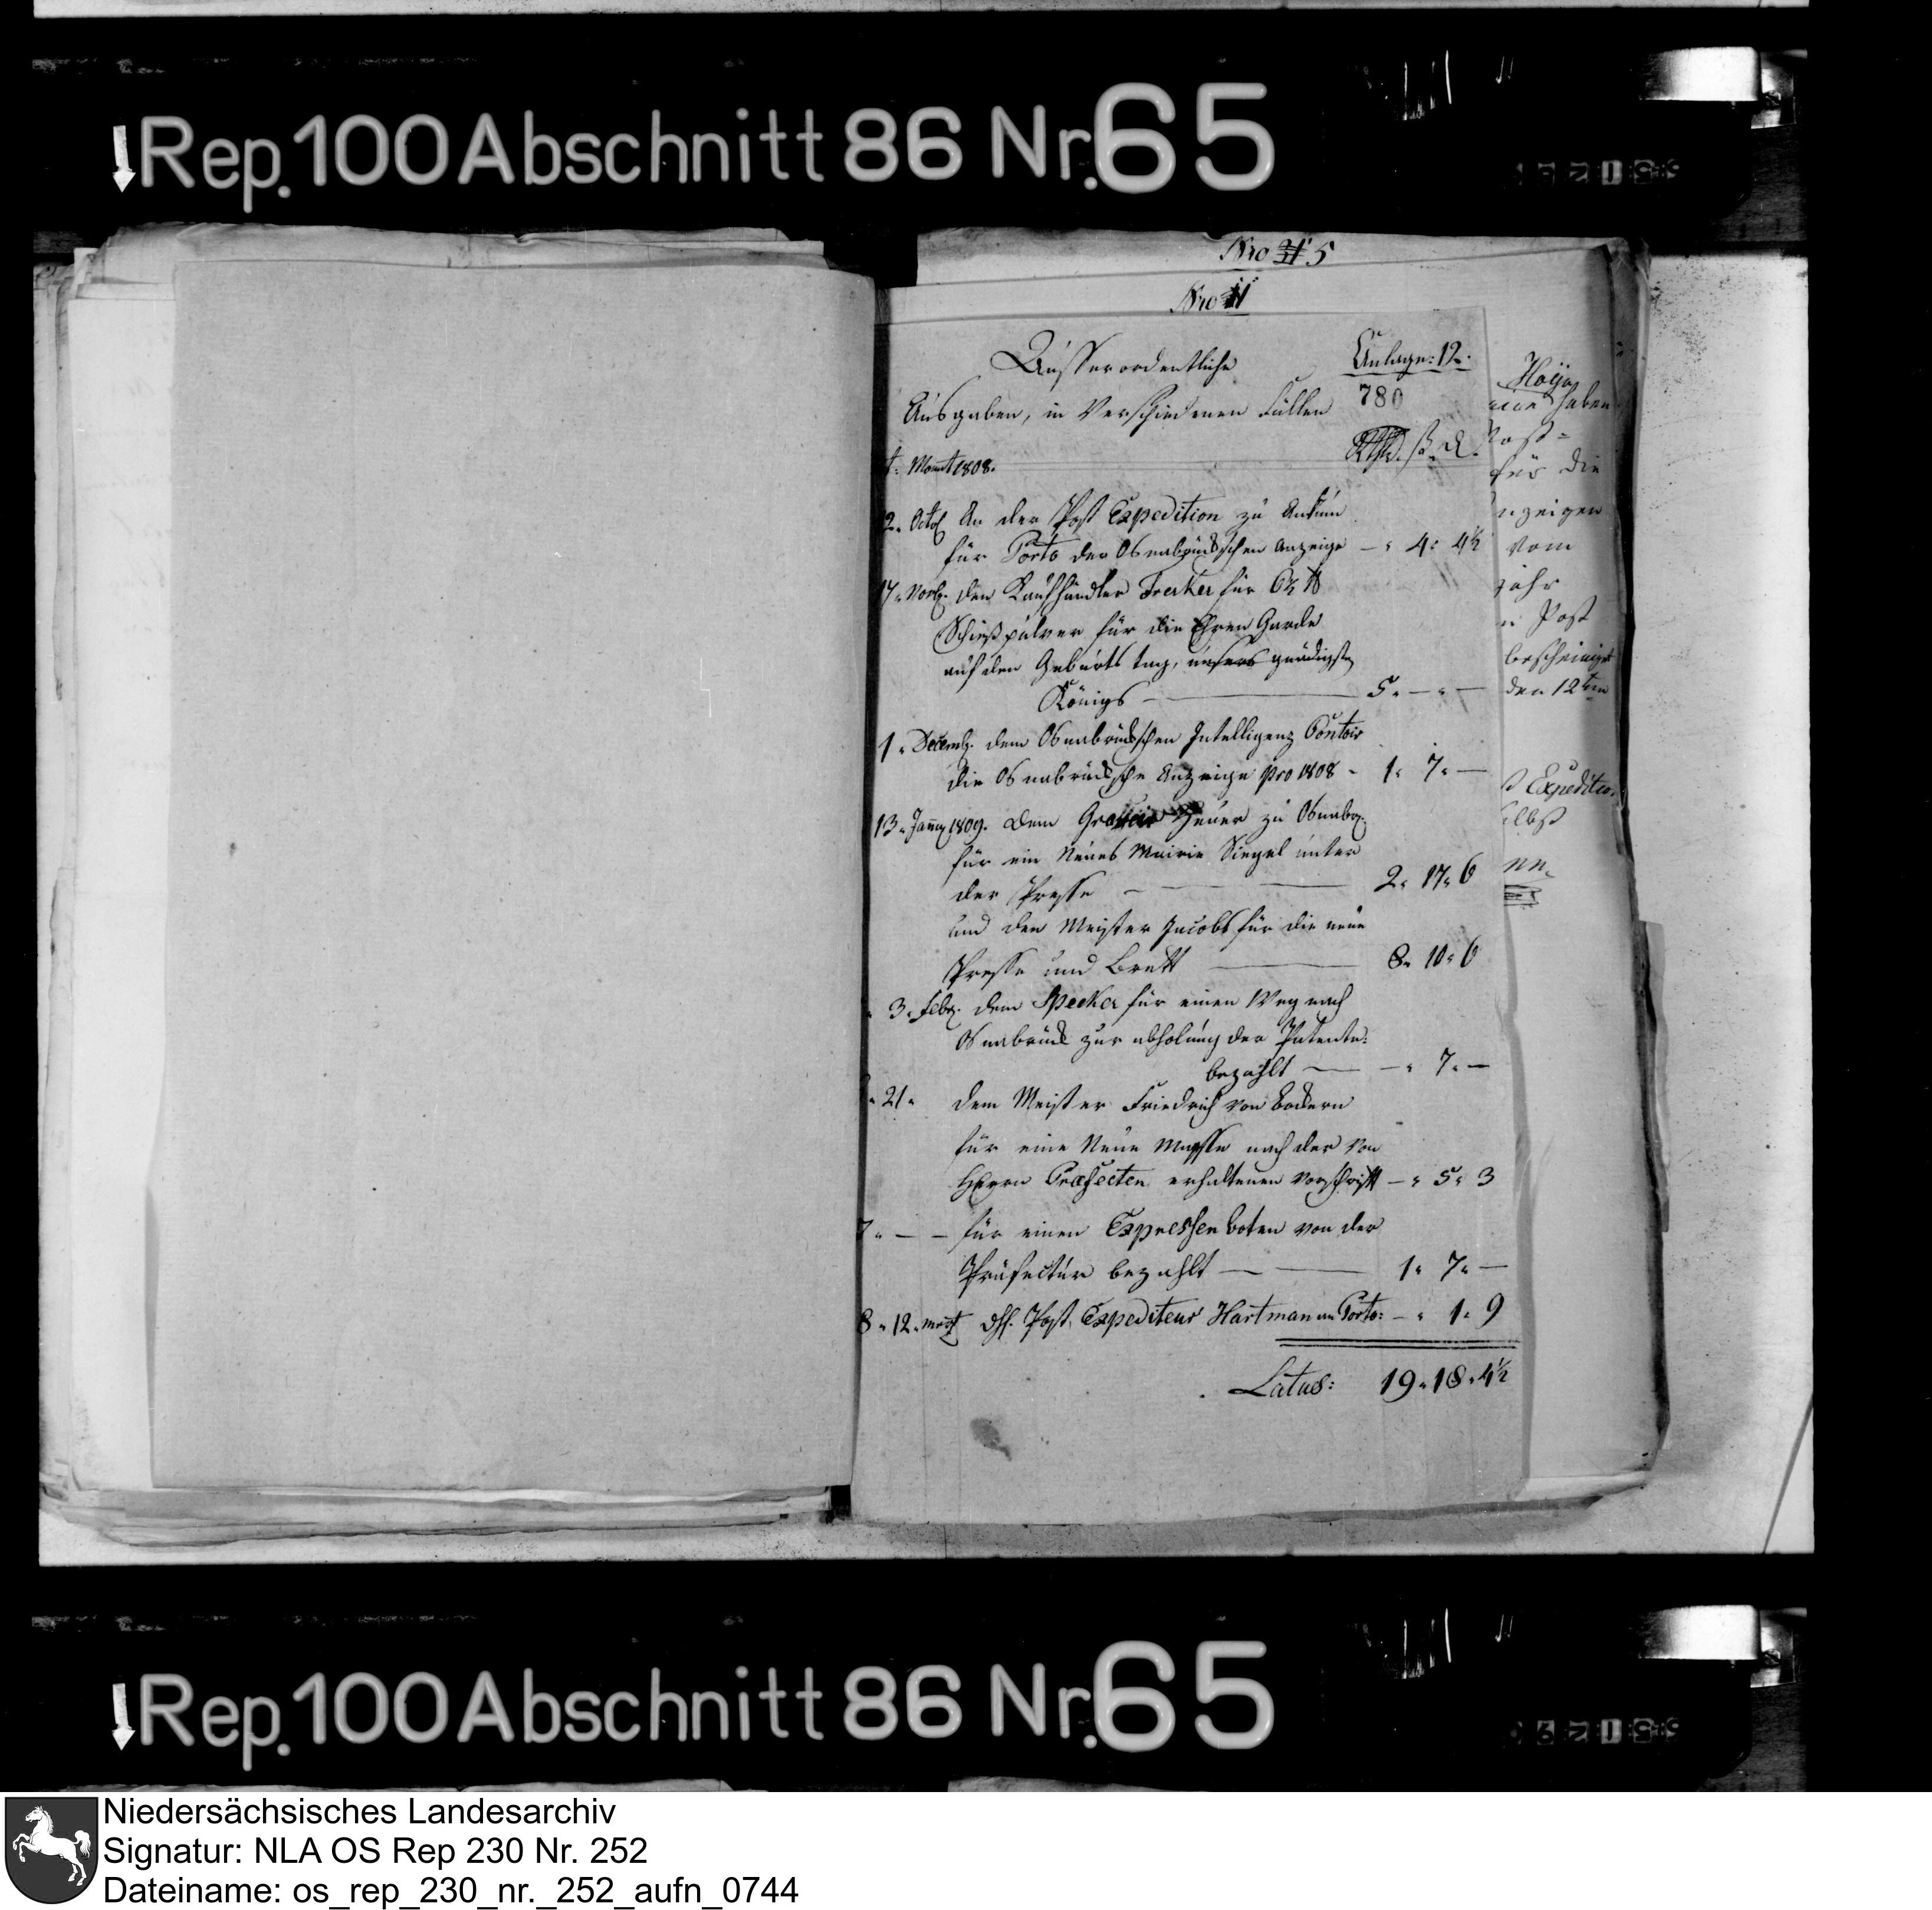 Rep. 100 Abschnitt 86 Nr. 65
Nro 5
Nro
Ausserordentliche
Anlage: 12.
Ausgaben, in verschiedenen Fällen
780
Rthlr. ß. d.
Monat 1808.
2. Octb An der Post Expedition zu Ankum
für Porto der Osnabrückschen Anzeige — " 4 " 4½
17. Novb. den Kaufhändler Frerker für 6½ ℔
Schießpulver für die Ehren Garde
auf den Geburts tag, unsers gnädigst
Königs — 5 " — " —
1. Decemb. dem Osnabrückschen Intelligenz Contoir
die Osnabrücksche Anzeige pro 1808 - 1 " 7 " —
13. Januar 1809. dem Heuer zu Osnabr.
für ein Neues Mairie Siegel unter
der Presse — 2 " 17 " 6
und den Meister Jacobs für die neue
Presse und Brett — 8 " 10 " 6
3. Febr. dem Specker für einen Weg nach
Osnabrück zur abholung der Patente:
bezahlt — — " 7 " —
" 21 " dem Meister Friedrich von Bockern
für eine Neue nach der von
Herrn Præfecten erhaltenen Vorschrift — " 5 " 3
7 " — — für einen Expressen boten von der
Präfectur bezahlt — 1 " 7 " —
8 " 12 Post Expediteur Hartmann Porto: — " 1 " 9
Latus: 19 " 18 " 4½
Hoija
haben
Post=
für die
nzeigen
vom
jahr
Post
bescheinigt
den 12ten
Expeditio
elbst
nn.
Rep. 100 Abschnitt 86 Nr. 65
Niedersächsisches Landesarchiv
Signatur: NLA OS Rep 230 Nr. 252
Dateiname: os_rep_230_nr._252_aufn_0744